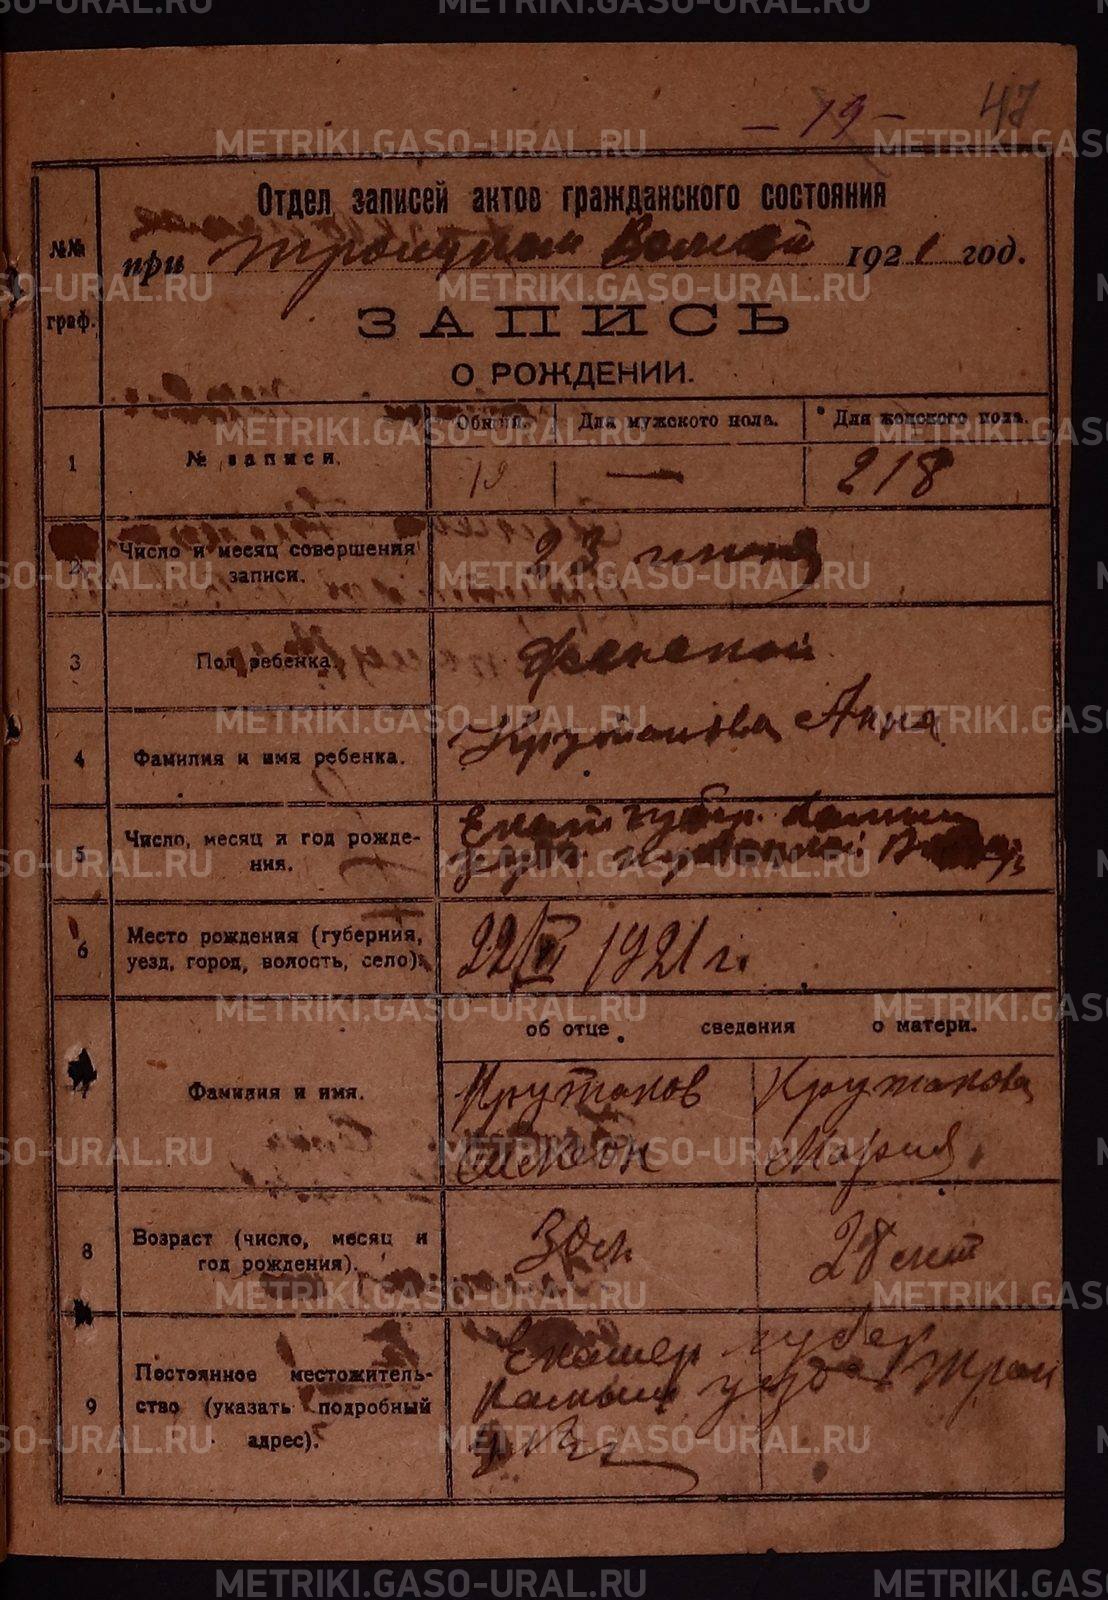 - 19 - 47
Отдел записей актов гражданского состояния
при Троицкой Волости 1921 год.
№№ граф.
ЗАПИСЬ
О РОЖДЕНИИ.
Общий. Для мужского пола. Для женского пола.
1 № записи. 19 — 218
2 Число и месяц совершения
записи. 23 июня
3 Пол ребенка. Женской
4 Фамилия и имя ребенка. Крутакова Анна
5 Число, месяц и год рожде-
ния. Екат губер. Камыш
уезда
6 Место рождения (губерния,
уезд, город, волость, село). 22/VI 1921 г.
об отце сведения о матери.
7 Фамилия и имя. Крутаков Крутакова
Симеон Мария
8 Возраст (число, месяц и
год рождения). 30 л. 28 лет
9 Постоянное местожитель-
ство (указать подробный
адрес). Екатер губер
Камыш уезда Трои
METRIKI.GASO-URAL.RU